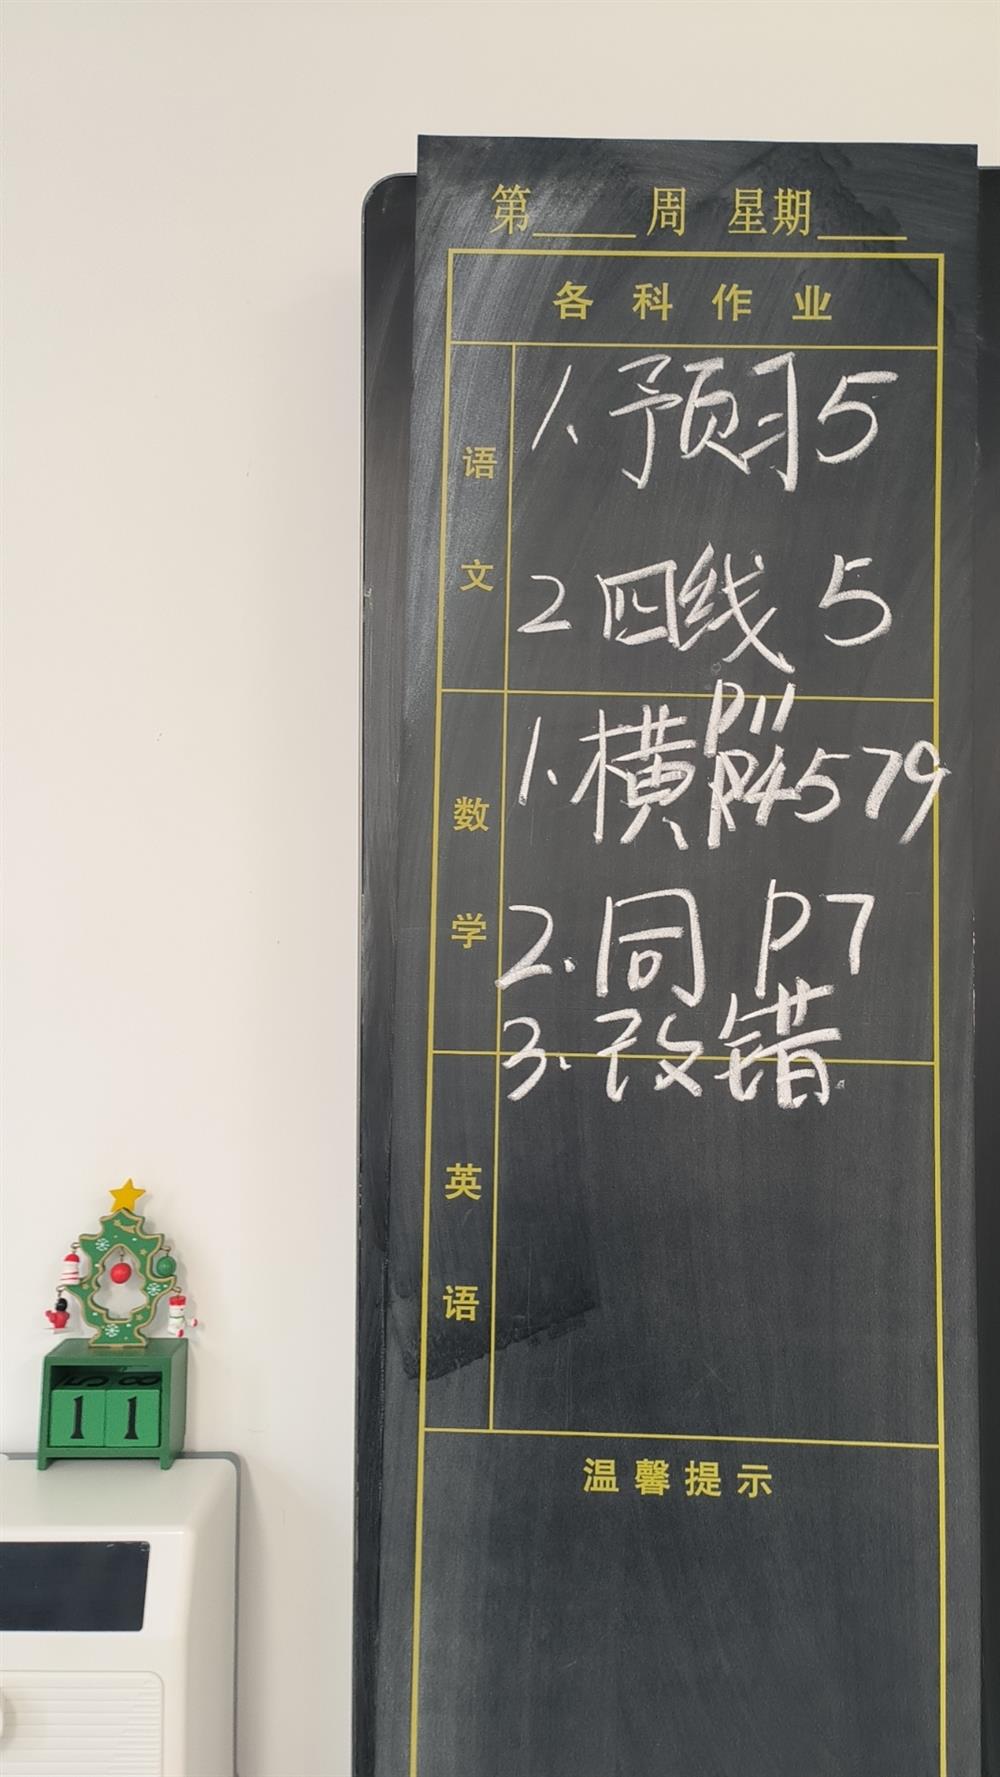 第____周 星期____
各科作业
语文
1.预习5
2 四线 5
数学
P11
1.横 P4579
2.同 P7
3.改错
英语
温馨提示
11